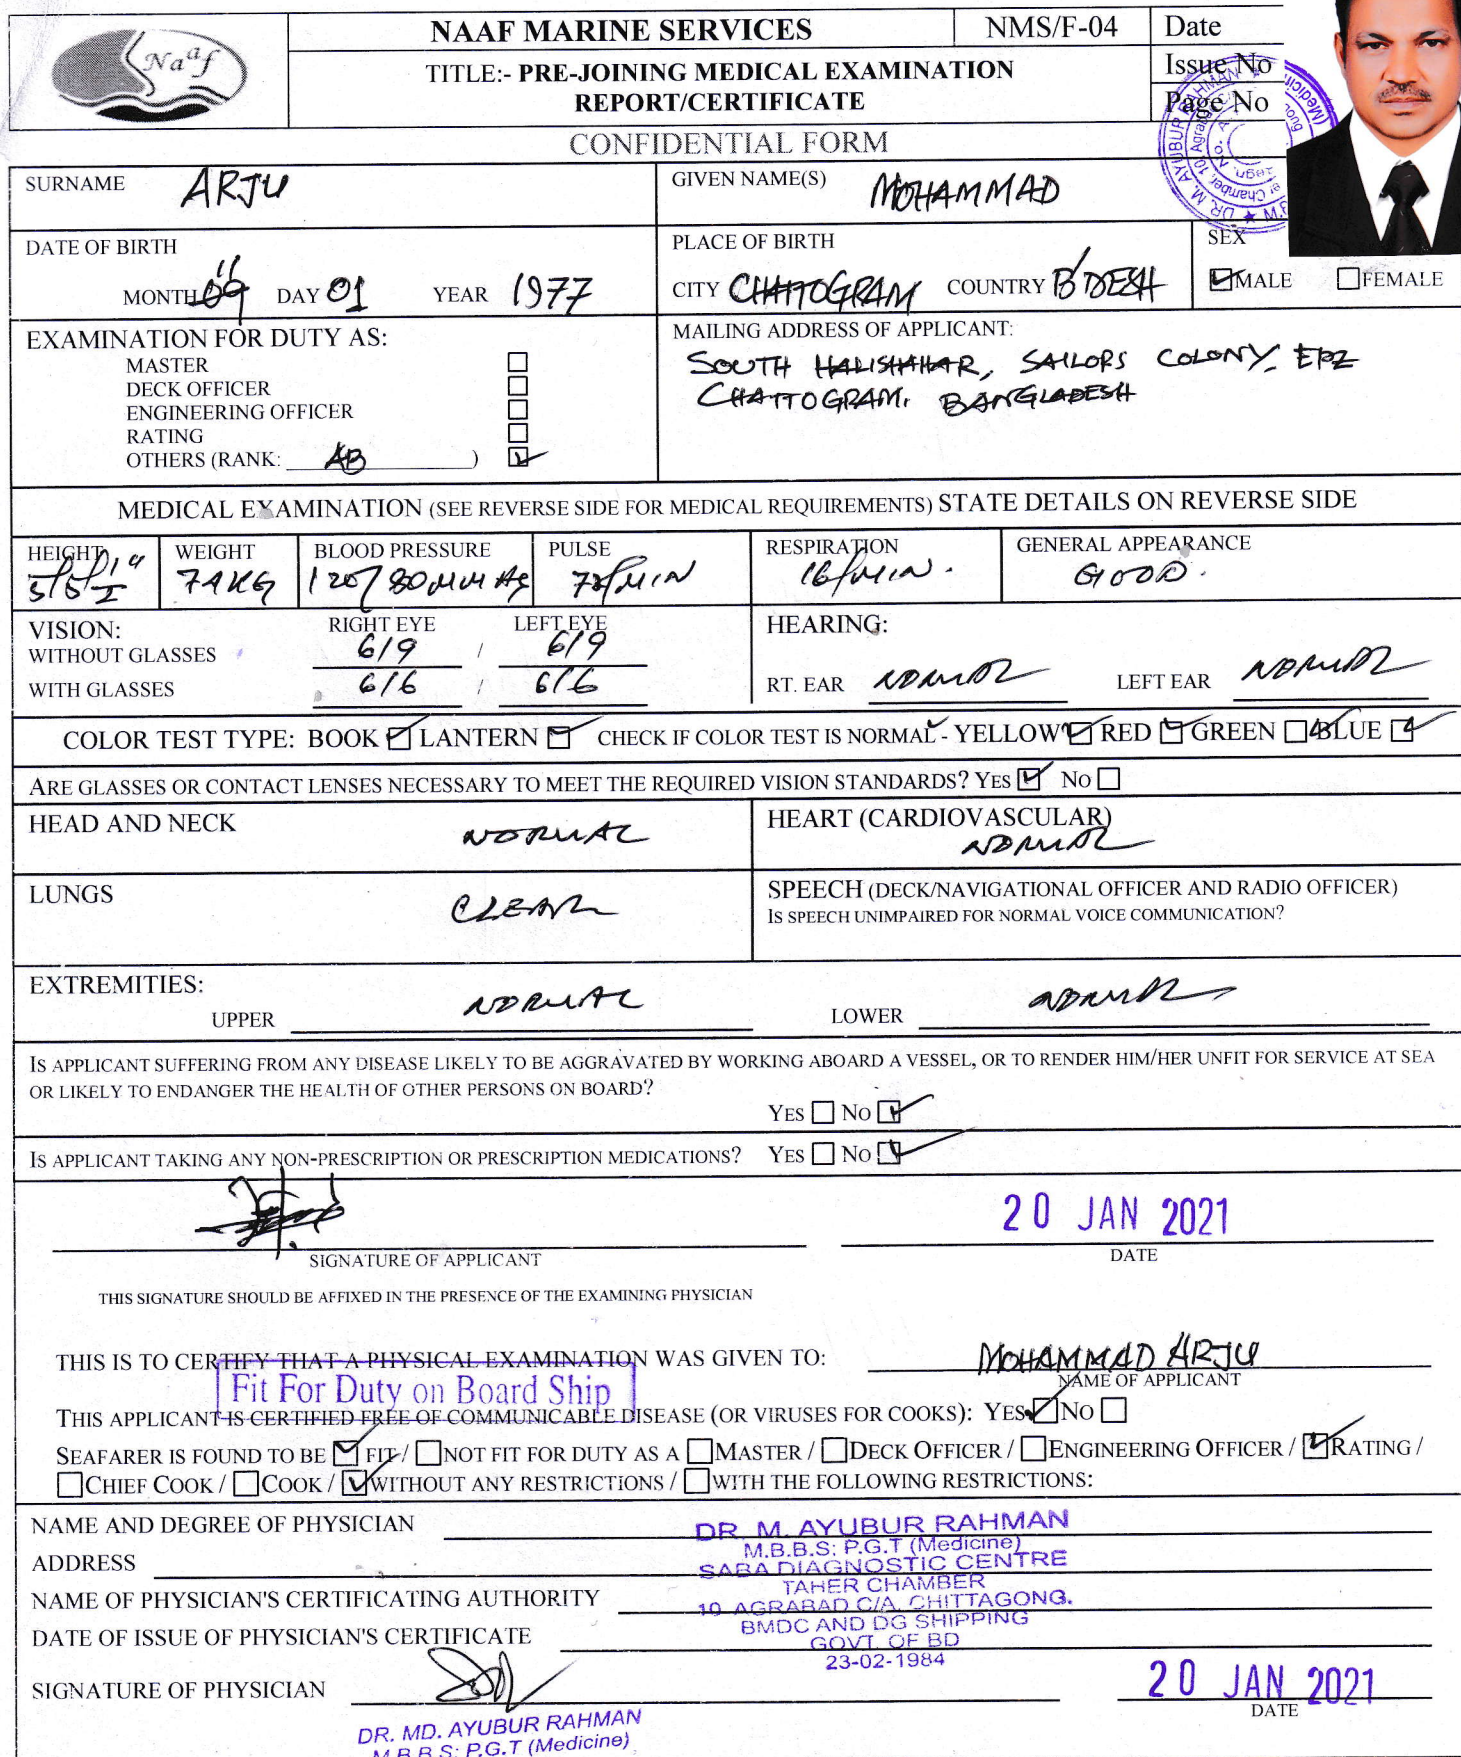 Naaf
NAAF MARINE SERVICES NMS/F-04 Date
TITLE:- PRE-JOINING MEDICAL EXAMINATION Issue No
REPORT/CERTIFICATE Page No
CONFIDENTIAL FORM
SURNAME ARJU GIVEN NAME(S) MOHAMMAD
DATE OF BIRTH PLACE OF BIRTH SEX
MONTH 09 11 DAY 01 YEAR 1977 CITY CHATTOGRAM COUNTRY B'DESH MALE FEMALE
EXAMINATION FOR DUTY AS: MAILING ADDRESS OF APPLICANT:
MASTER SOUTH HALISHAHAR, SAILORS COLONY, EPZ
DECK OFFICER CHATTOGRAM. BANGLADESH
ENGINEERING OFFICER
RATING
OTHERS (RANK: AB )
MEDICAL EXAMINATION (SEE REVERSE SIDE FOR MEDICAL REQUIREMENTS) STATE DETAILS ON REVERSE SIDE
HEIGHT WEIGHT BLOOD PRESSURE PULSE RESPIRATION GENERAL APPEARANCE
74KG 120/80MM Hg 72/MIN 16/MIN. GOOD.
VISION: RIGHT EYE LEFT EYE HEARING:
WITHOUT GLASSES 6/9 / 6/9
WITH GLASSES 6/6 / 6/6 RT. EAR NORMAL LEFT EAR NORMAL
COLOR TEST TYPE: BOOK LANTERN CHECK IF COLOR TEST IS NORMAL - YELLOW RED GREEN BLUE
ARE GLASSES OR CONTACT LENSES NECESSARY TO MEET THE REQUIRED VISION STANDARDS? YES NO
HEAD AND NECK NORMAL HEART (CARDIOVASCULAR) NORMAL
LUNGS CLEAR SPEECH (DECK/NAVIGATIONAL OFFICER AND RADIO OFFICER)
IS SPEECH UNIMPAIRED FOR NORMAL VOICE COMMUNICATION?
EXTREMITIES:
UPPER NORMAL LOWER NORMAL
IS APPLICANT SUFFERING FROM ANY DISEASE LIKELY TO BE AGGRAVATED BY WORKING ABOARD A VESSEL, OR TO RENDER HIM/HER UNFIT FOR SERVICE AT SEA
OR LIKELY TO ENDANGER THE HEALTH OF OTHER PERSONS ON BOARD?
YES NO
IS APPLICANT TAKING ANY NON-PRESCRIPTION OR PRESCRIPTION MEDICATIONS? YES NO
20 JAN 2021
SIGNATURE OF APPLICANT DATE
THIS SIGNATURE SHOULD BE AFFIXED IN THE PRESENCE OF THE EXAMINING PHYSICIAN
THIS IS TO CERTIFY THAT A PHYSICAL EXAMINATION WAS GIVEN TO: MOHAMMAD ARJU
NAME OF APPLICANT
Fit For Duty on Board Ship
THIS APPLICANT IS CERTIFIED FREE OF COMMUNICABLE DISEASE (OR VIRUSES FOR COOKS): YES NO
SEAFARER IS FOUND TO BE FIT / NOT FIT FOR DUTY AS A MASTER / DECK OFFICER / ENGINEERING OFFICER / RATING /
CHIEF COOK / COOK / WITHOUT ANY RESTRICTIONS / WITH THE FOLLOWING RESTRICTIONS:
NAME AND DEGREE OF PHYSICIAN DR. M. AYUBUR RAHMAN
M.B.B.S; P.G.T (Medicine)
ADDRESS SABA DIAGNOSTIC CENTRE
TAHER CHAMBER
NAME OF PHYSICIAN'S CERTIFICATING AUTHORITY 10 AGRABAD C/A. CHITTAGONG.
BMDC AND DG SHIPPING
DATE OF ISSUE OF PHYSICIAN'S CERTIFICATE GOVT. OF BD
23-02-1984
SIGNATURE OF PHYSICIAN 20 JAN 2021
DATE
DR. MD. AYUBUR RAHMAN
M.B.B.S; P.G.T (Medicine)